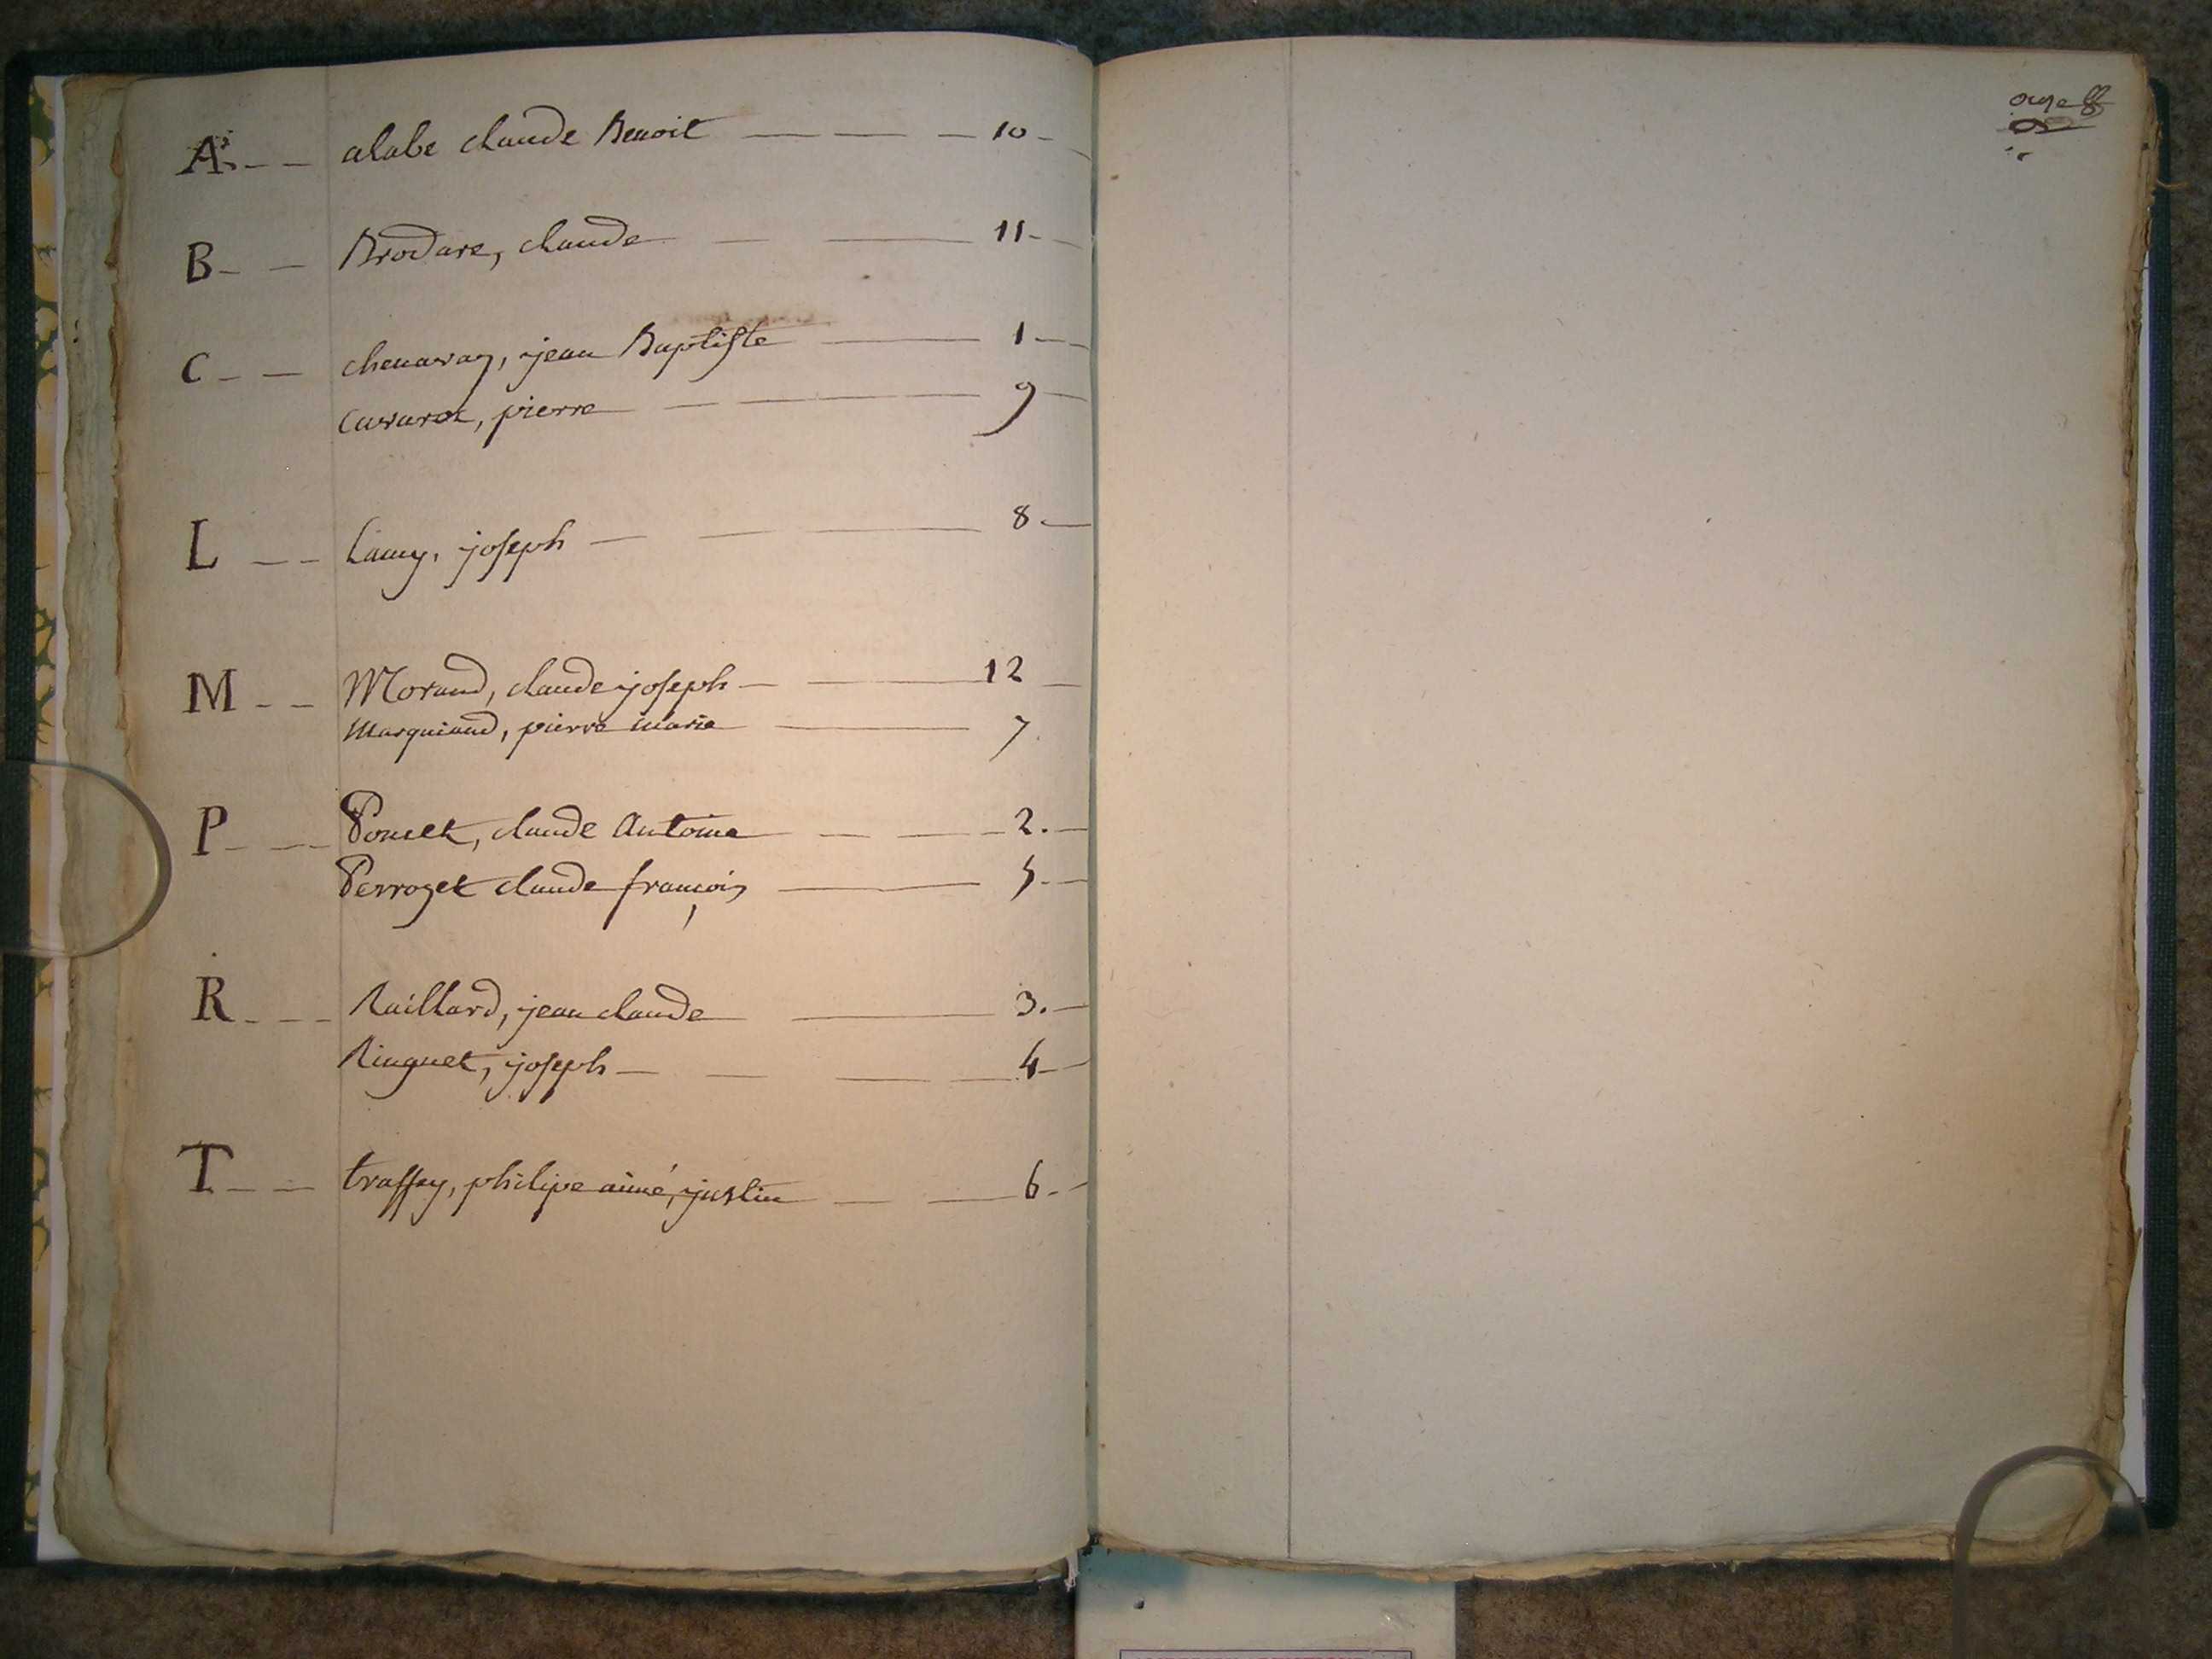 A -- alabe claude Benoit --- 10 -
B -- Brodare, claude --- 11 -
C -- chenavaz, jean Baptiste --- 1 -
Cavarot, pierre --- 9 -
L -- Lamy, joseph --- 8 -
M -- Morand, claude joseph --- 12 -
Marquiand, pierre marie --- 7
P -- Poncet, claude Antoine --- 2. -
Perrozet claude françois --- 5 -
R -- Raillard, jean claude --- 3. -
Ringuet, joseph --- 4 -
T -- traffey, philipe aimé, justin --- 6 -